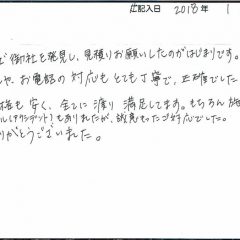 ご記入日 2018年 1
ご御社を発見し、見積りお願いしたのがはじまりです。
や、お電話の対応もとても丁寧で、正確でした
格も安く、全てに渡り満足してます。もちろん施
ル(アクシデント)もありましたが、誠意もったご対応でした。
りがとうございました。